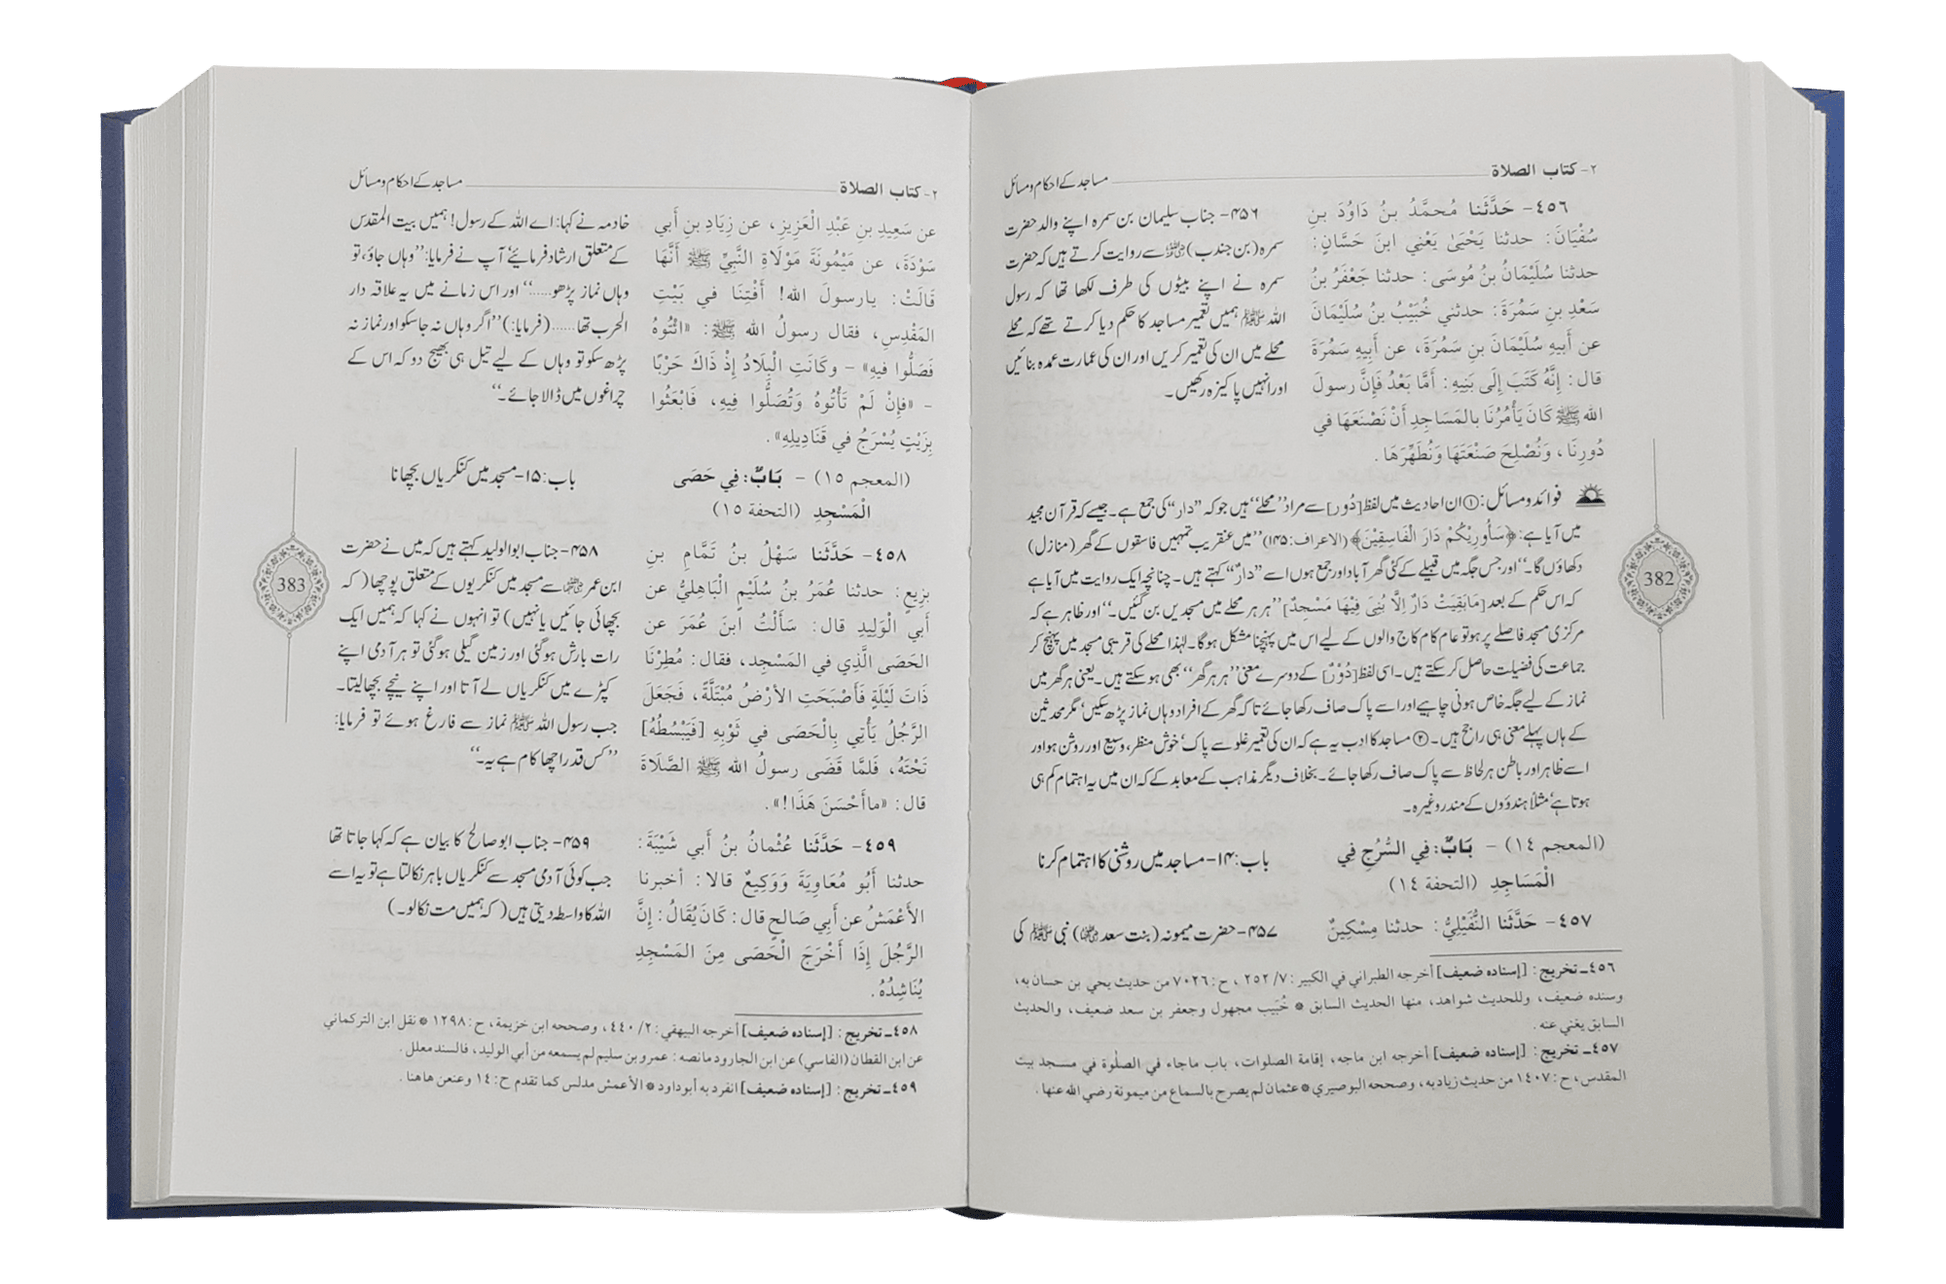 ٢- كتاب الصلاة
مساجد کے احکام و مسائل
٤٥٦- حَدَّثَنا مُحمَّدُ بنُ دَاوُدَ بنِ
سُفْيَانَ: حدثنا يَحْيَىٰ يَعْني ابنَ حَسَّانٍ:
حدثنا سُلَيْمَانُ بنُ مُوسَى: حدثنا جَعْفَرُ بنُ
سَعْدِ بنِ سَمُرَةَ: حدثني خُبَيْبُ بنُ سُلَيْمَانَ
عن أَبِيهِ سُلَيْمَانَ بنِ سَمُرَةَ، عن أَبِيهِ سَمُرَةَ
قال: إِنَّهُ كَتَبَ إِلَى بَنِيهِ: أَمَّا بَعْدُ فَإِنَّ رسولَ
الله ﷺ كَانَ يَأْمُرُنَا بالمَسَاجِدِ أَنْ نَصْنَعَهَا في
دُورِنَا، وَنُصْلِحَ صَنْعَتَهَا وَنُطَهِّرَهَا.
۴۵۶- جناب سلیمان بن سمرہ اپنے والد حضرت
سمرہ (بن جندب) رضی اللہ عنہ سے روایت کرتے ہیں کہ حضرت
سمرہ نے اپنے بیٹوں کی طرف لکھا تھا کہ رسول
اللہ ﷺ ہمیں تعمیر مساجد کا حکم دیا کرتے تھے کہ محلے
محلے میں ان کی تعمیر کریں اور ان کی عمارت عمدہ بنائیں
اور انہیں پاکیزہ رکھیں۔
فوائد و مسائل: ① ان احادیث میں لفظ [دُوْر] سے مراد ’’محلے‘‘ ہیں جو کہ ’’دار‘‘ کی جمع ہے۔ جیسے کہ قرآن مجید
میں آیا ہے: ﴿سَأُورِيكُمْ دَارَ الْفَاسِقِيْنَ﴾ (الاعراف:۱۴۵) ’’میں عنقریب تمہیں فاسقوں کے گھر (منازل)
دکھاؤں گا۔‘‘ اور جس جگہ میں قبیلے کے کئی گھر آباد اور جمع ہوں اسے ’’دارٌ‘‘ کہتے ہیں۔ چنانچہ ایک روایت میں آیا ہے
کہ اس حکم کے بعد [مَابَقِيَتْ دَارٌ اِلَّا بُنِیَ فِيْهَا مَسْجِدٌ] ’’ہر ہر محلے میں مسجدیں بن گئیں۔‘‘ اور ظاہر ہے کہ
مرکزی مسجد فاصلے پر ہو تو عام کام کاج والوں کے لیے اس میں پہنچنا مشکل ہوگا۔ لہٰذا محلے کی قریبی مسجد میں پہنچ کر
جماعت کی فضیلت حاصل کر سکتے ہیں۔ اسی لفظ [دُوْرٌ] کے دوسرے معنی ’’ہر ہر گھر‘‘ بھی ہو سکتے ہیں۔ یعنی ہر گھر میں
نماز کے لیے جگہ خاص ہونی چاہیے اور اسے پاک صاف رکھا جائے تاکہ گھر کے افراد وہاں نماز پڑھ سکیں‘ مگر محدثین
کے ہاں پہلے معنی ہی راجح ہیں۔ ② مساجد کا ادب یہ ہے کہ ان کی تعمیر غلو سے پاک‘ خوش منظر، وسیع اور روشن ہو اور
اسے ظاہر اور باطن ہر لحاظ سے پاک صاف رکھا جائے۔ بخلاف دیگر مذاہب کے معابد کے کہ ان میں یہ اہتمام کم ہی
ہوتا ہے‘ مثلاً ہندوؤں کے مندر وغیرہ۔
(المعجم ١٤) - بَابٌ: فِي السُّرُجِ فِي
الْمَسَاجِدِ (التحفة ١٤)
باب: ۱۴- مساجد میں روشنی کا اہتمام کرنا
٤٥٧- حَدَّثَنا النُّفَيْلِيُّ: حدثنا مِسْكِينٌ
۴۵۷- حضرت میمونہ (بنت سعد رضی اللہ عنہا) نبی ﷺ کی
٤٥٦ـ تخريج: [إسناده ضعيف] أخرجه الطبراني في الكبير: ٧/ ٢٥٢، ح: ٧٠٢٦ من حديث يحي بن حسان به،
وسنده ضعيف، وللحديث شواهد، منها الحديث السابق * خُبَيب مجهول وجعفر بن سعد ضعيف، والحديث
السابق يغني عنه.
٤٥٧ـ تخريج: [إسناده ضعيف] أخرجه ابن ماجه، إقامة الصلوات، باب ماجاء في الصلٰوة في مسجد بيت
المقدس، ح: ١٤٠٧ من حديث زياد به، وصححه البوصيري * عثمان لم يصرح بالسماع من ميمونة رضي الله عنها.
382
٢- كتاب الصلاة
مساجد کے احکام و مسائل
عن سَعِيدِ بنِ عَبْدِ الْعَزِيزِ، عن زِيَادِ بنِ أَبي
سَوْدَةَ، عن مَيْمُونَةَ مَوْلَاةِ النَّبيِّ ﷺ أَنَّهَا
قَالَتْ: يارسولَ الله! أَفْتِنَا في بَيْتِ
المَقْدِسِ، فقال رسولُ الله ﷺ: «ائْتُوهُ
فَصَلُّوا فيهِ» - وكَانَتِ الْبِلَادُ إِذْ ذَاكَ حَرْبًا
- «فإِنْ لَمْ تَأْتُوهُ وَتُصَلُّوا فِيهِ، فَابْعَثُوا
بِزَيْتٍ يُسْرَجُ في قَنَادِيلِهِ».
خادمہ نے کہا: اے اللہ کے رسول! ہمیں بیت المقدس
کے متعلق ارشاد فرمایئے‘ آپ نے فرمایا: ’’وہاں جاؤ، تو
وہاں نماز پڑھو......‘‘ اور اس زمانے میں یہ علاقہ دار
الحرب تھا...... (فرمایا:) ’’اگر وہاں نہ جا سکو اور نماز نہ
پڑھ سکو تو وہاں کے لیے تیل ہی بھیج دو کہ اس کے
چراغوں میں ڈالا جائے۔‘‘
(المعجم ١٥) - بَابٌ: فِي حَصَى
الْمَسْجِدِ (التحفة ١٥)
باب: ۱۵- مسجد میں کنکریاں بچھانا
٤٥٨- حَدَّثَنا سَهْلُ بنُ تَمَّامِ بنِ
بَزِيعٍ: حدثنا عُمَرُ بنُ سُلَيْمٍ الْبَاهِليُّ عن
أَبي الْوَلِيدِ قال: سَأَلْتُ ابنَ عُمَرَ عن
الحَصَى الَّذِي في المَسْجِدِ، فقال: مُطِرْنَا
ذَاتَ لَيْلَةٍ فَأَصْبَحَتِ الأَرْضُ مُبْتَلَّةً، فَجَعَلَ
الرَّجُلُ يَأْتِي بِالْحَصَى في ثَوْبِهِ [فَيَبْسُطُهُ]
تَحْتَهُ، فَلمَّا قَضَى رسولُ الله ﷺ الصَّلَاةَ
قال: «ماأَحْسَنَ هَذَا!».
۴۵۸- جناب ابو الولید کہتے ہیں کہ میں نے حضرت
ابن عمر رضی اللہ عنہما سے مسجد میں کنکریوں کے متعلق پوچھا (کہ
بچھائی جائیں یا نہیں) تو انہوں نے کہا کہ ہمیں ایک
رات بارش ہو گئی اور زمین گیلی ہو گئی تو ہر آدمی اپنے
کپڑے میں کنکریاں لے آتا اور اپنے نیچے بچھا لیتا۔
جب رسول اللہ ﷺ نماز سے فارغ ہوئے تو فرمایا:
’’کس قدر اچھا کام ہے یہ۔‘‘
٤٥٩- حَدَّثَنا عُثْمانُ بنُ أَبي شَيْبَةَ:
حدثنا أَبُو مُعَاوِيَةَ وَوَكِيعٌ قالا: أخبرنا
الأَعْمَشُ عن أَبِي صَالحٍ قال: كَانَ يُقَالُ: إِنَّ
الرَّجُلَ إِذَا أَخْرَجَ الْحَصَى مِنَ المَسْجِدِ
يُنَاشِدُهُ.
۴۵۹- جناب ابو صالح کا بیان ہے کہ کہا جاتا تھا
جب کوئی آدمی مسجد سے کنکریاں باہر نکالتا ہے تو یہ اسے
اللہ کا واسطہ دیتی ہیں (کہ ہمیں مت نکالو۔)
٤٥٨ـ تخريج: [إسناده ضعيف] أخرجه البيهقي: ٢/ ٤٤٠، وصححه ابن خزيمة، ح: ١٢٩٨ * نقل ابن التركماني
عن ابن القطان (الفاسي) عن ابن الجارود مانصه: عمرو بن سليم لم يسمعه من أبي الوليد، فالسند معلل.
٤٥٩ـ تخريج: [إسناده ضعيف] انفرد به أبوداود * الأعمش مدلس كما تقدم ح: ١٤ وعنعن هاهنا.
383